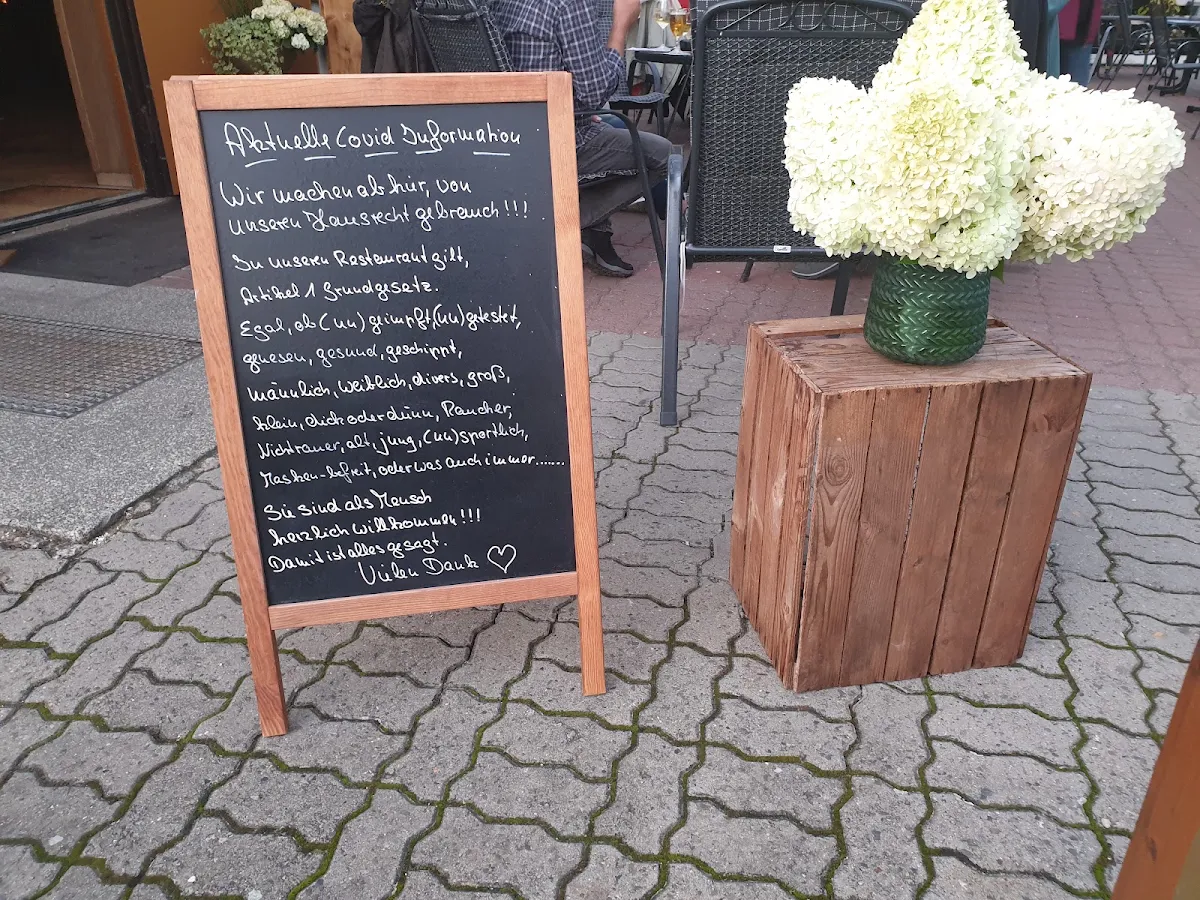 Aktuelle Covid Information
Wir machen ab hier, von
unseren Hausrecht gebrauch!!!
In unseren Restaurant gilt,
Artikel 1 Grundgesetz.
Egal, ob (un)geimpft, (un)getestet,
genesen, gesund, geschippt,
männlich, weiblich, divers, groß,
klein, dick oder dünn, Raucher,
Nichtrauer, alt, jung, (un)sportlich,
Masken-befreit, oder was auch immer.......
Sie sind als Mensch
herzlich willkommen!!!
Damit ist alles gesagt.
Vielen Dank ♡